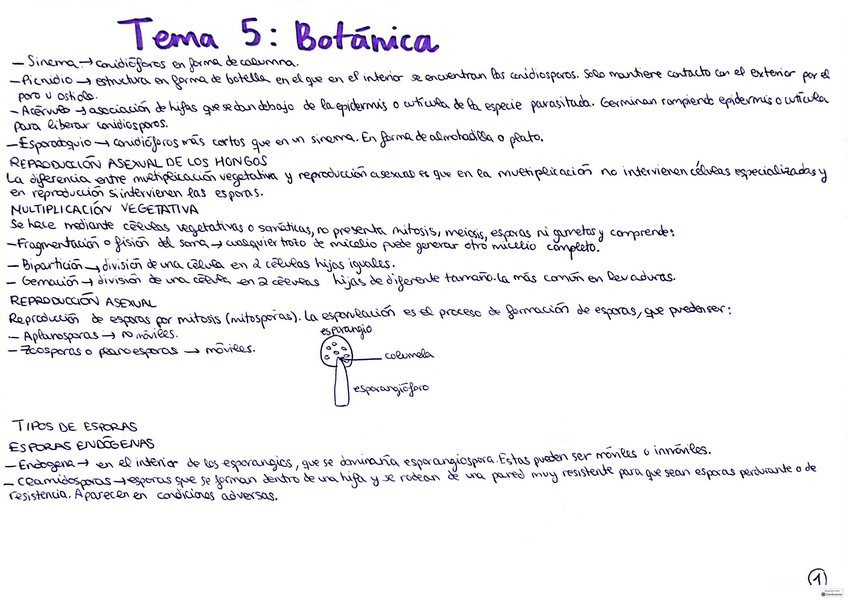 Tema 5: Botánica
- Sinema → conidióforos en forma de columna.
- Picnidio → estructura en forma de botella en el que en el interior se encuentran los conidiosporos. Solo mantiene contacto con el exterior por el
poro u ostiolo.
- Acérvulo → asociación de hifas que se dan debajo de la epidermis o cutícula de la especie parasitada. Germinan rompiendo epidermis o cutícula
para liberar conidiosporos.
- Esporodoquio → conidióforos más cortos que en un sinema. En forma de almohadilla o plato.
REPRODUCCIÓN ASEXUAL DE LOS HONGOS
La diferencia entre multiplicación vegetativa y reproducción asexual es que en la multiplicación no intervienen células especializadas y
en reproducción si intervienen las esporas.
MULTIPLICACIÓN VEGETATIVA
Se hace mediante células vegetativas o somáticas, no presenta mitosis, meiosis, esporas ni gametos y comprende:
- Fragmentación o fisión del soma → cualquier trozo de micelio puede generar otro micelio completo.
- Bipartición → división de una célula en 2 células hijas iguales.
- Gemación → división de una célula en 2 células hijas de diferente tamaño. La más común en levaduras.
REPRODUCCIÓN ASEXUAL
Reproducción de esporas por mitosis (mitosporas). La esporulación es el proceso de formación de esporas, que pueden ser:
- Aplanosporas → no móviles.
- Zoosporas o planoesporas → móviles.
esporangio
columela
esporangióforo
TIPOS DE ESPORAS
ESPORAS ENDÓGENAS
- Endógena → en el interior de los esporangios, que se dominaría esporangiospora. Estas pueden ser móviles o inmóviles.
- Clamidosporas → esporas que se forman dentro de una hifa y se rodean de una pared muy resistente para que sean esporas perdurante o de
resistencia. Aparecen en condiciones adversas.
1
CamScanner